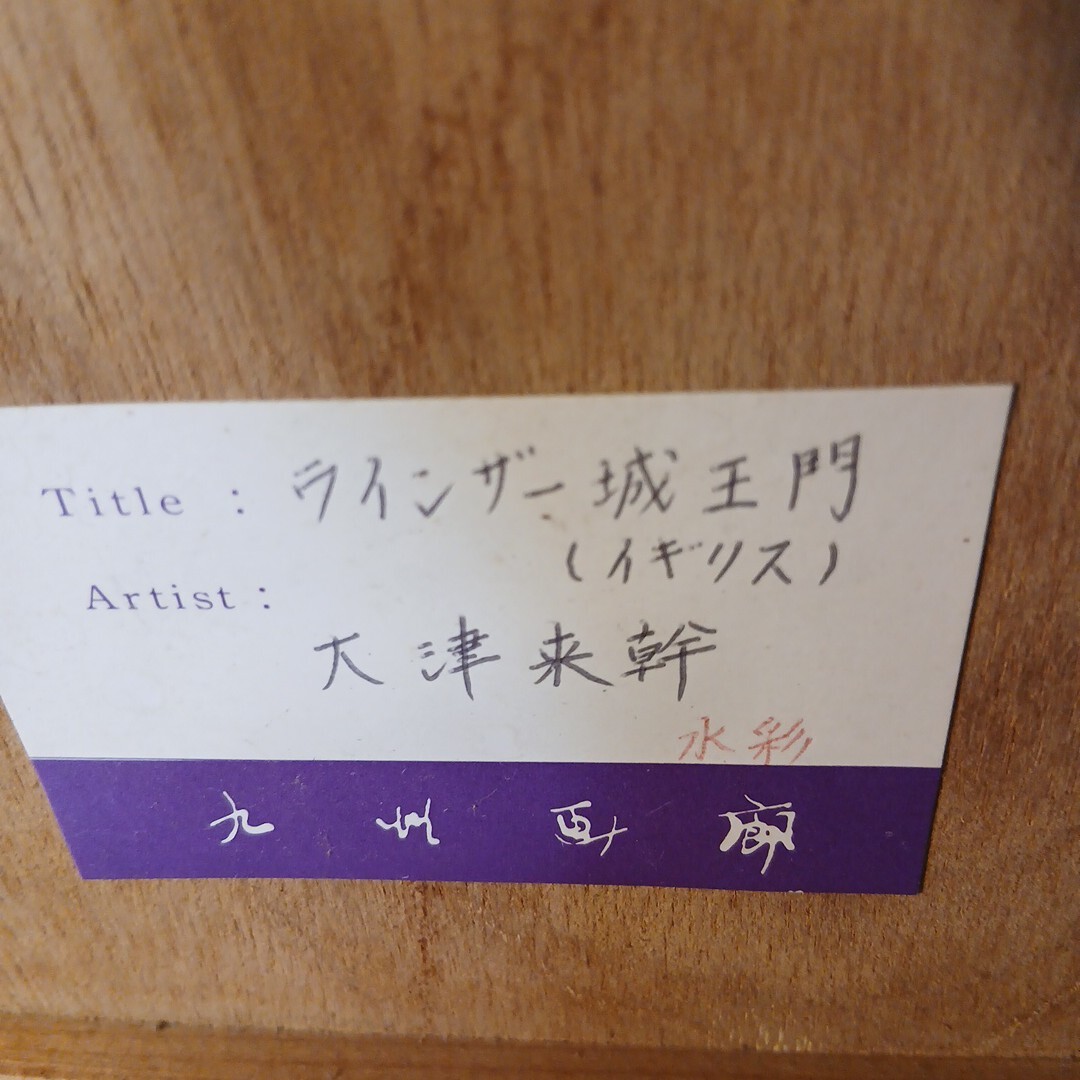 Title : ラインザー城王門
(イギリス)
Artist :
大津来幹
水彩
九 画廊